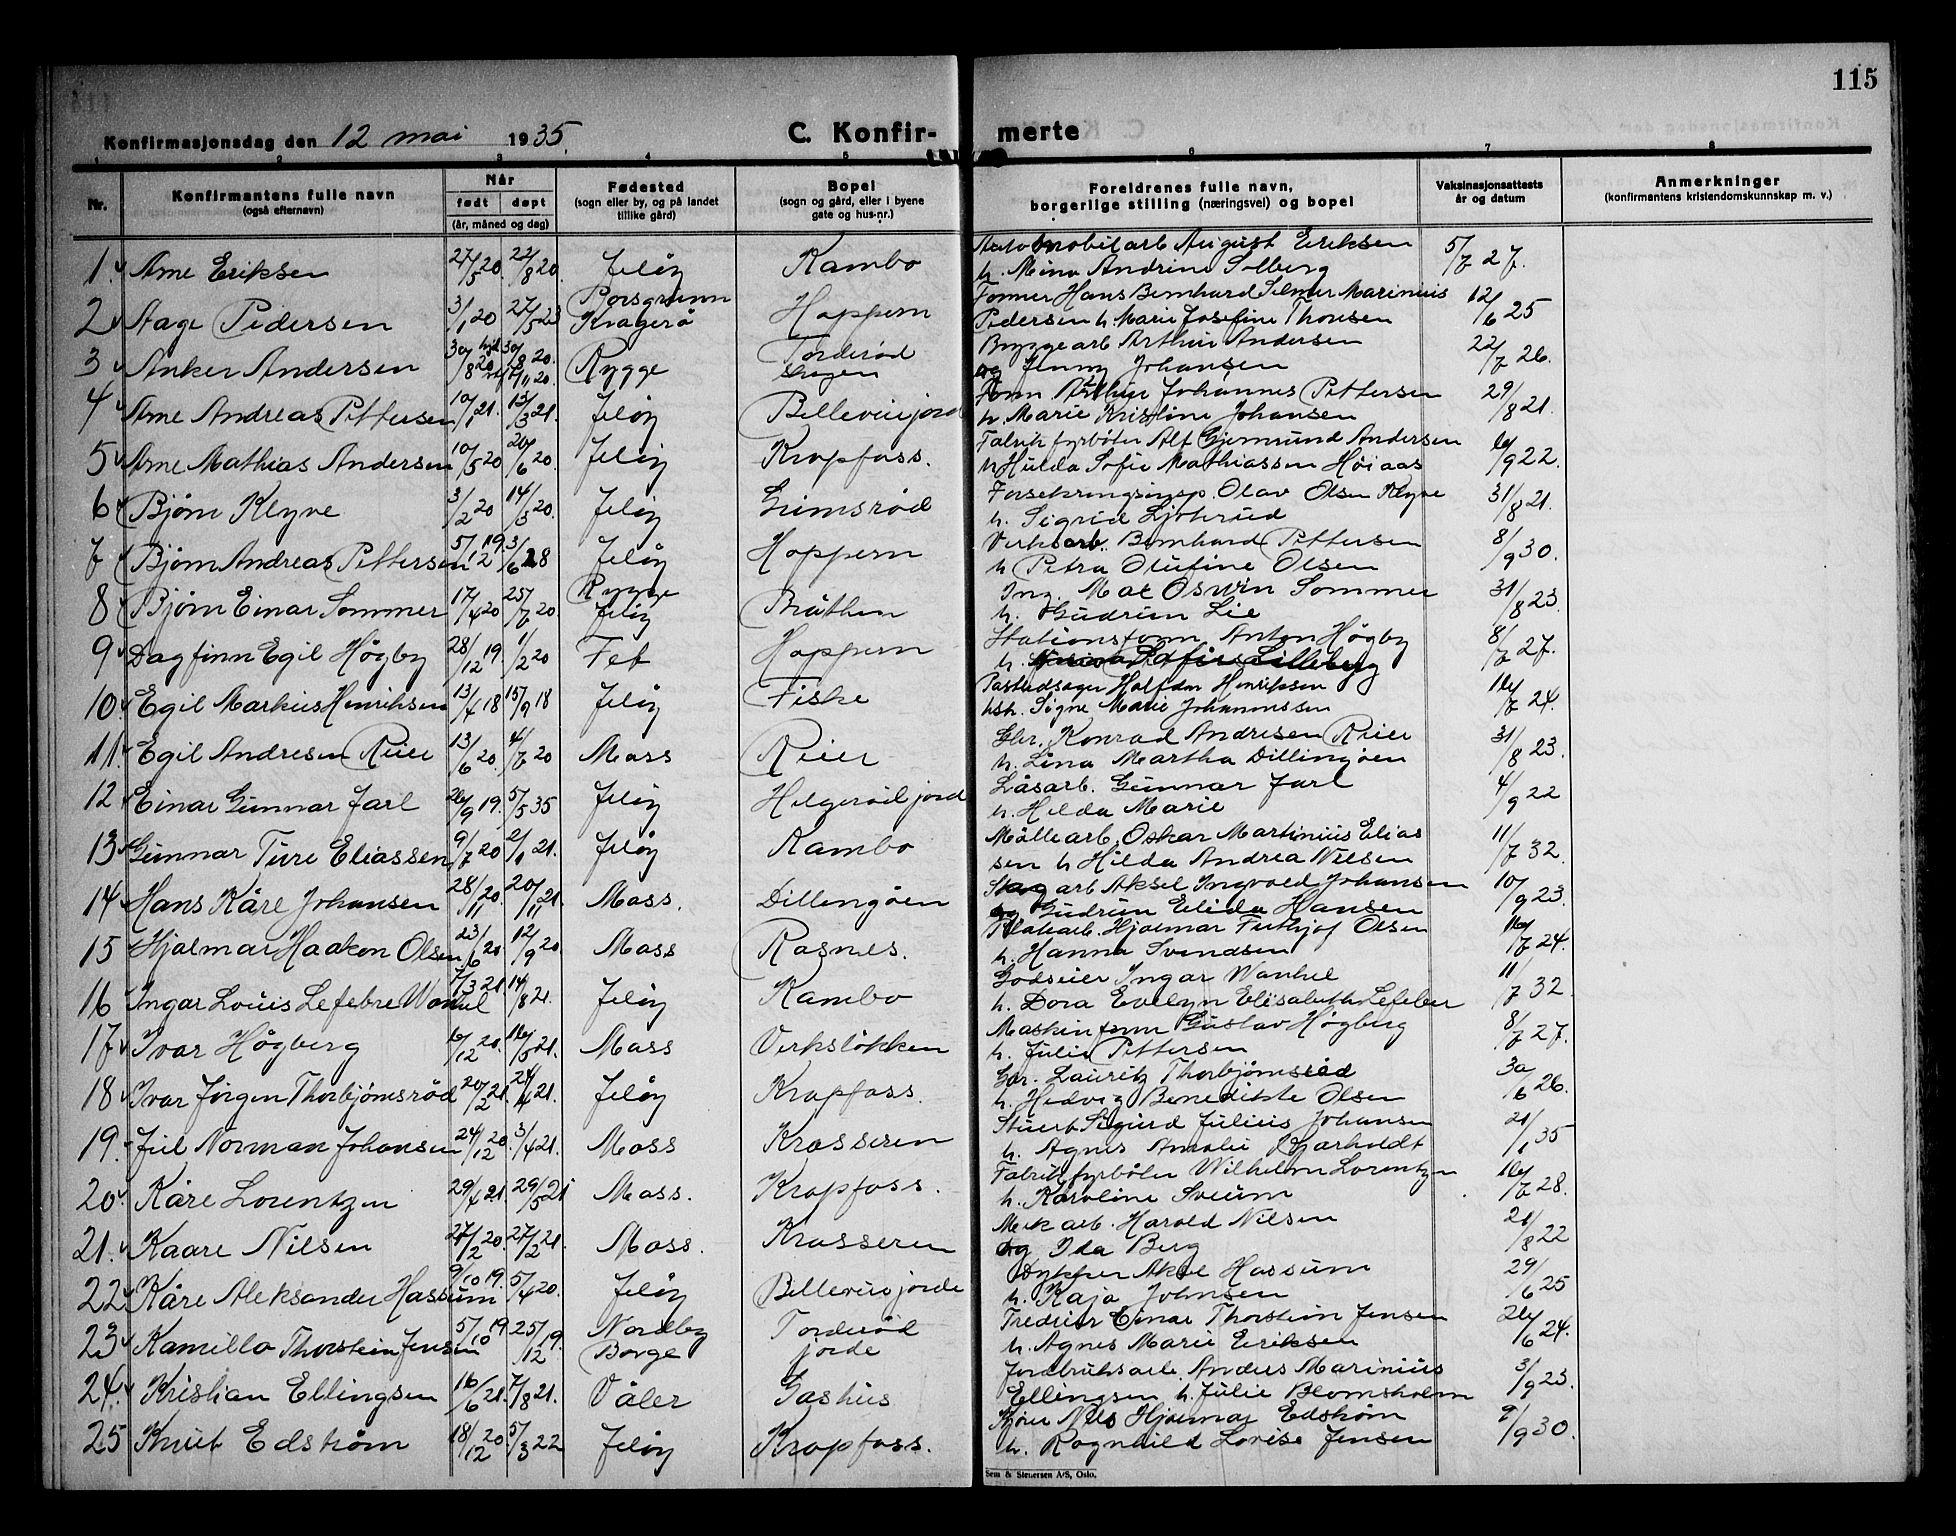 115
Konfirmasjonsdag den 12 mai 1935. C. Konfir- merte
1 2 3 4 5 6 7 8
Nr. Konfirmantens fulle navn Når Fødested Bopel Foreldrenes fulle navn, Vaksinasjonsattests Anmerkninger
(også efternavn) født døpt (sogn eller by, og på landet (sogn og gård, eller i byene borgerlige stilling (næringsvei) og bopel år og datum (konfirmantens kristendomskunnskap m. v.)
(år, måned og dag) tillike gård) gate og hus-nr.)
1. Arne Eriksen 27/5 20. 22/8 20. Jeløy Kambo Automobilarb August Eriksen 5/7 27.
h. Mina Andrine Solberg
2 Aage Pedersen 3/1 20 27/5 23 Porsgrunn Kragerø Hoppern Former Hans Bernhard Selmer Marinius 12/6 25
Pedersen h. Marie Josefine Thoresen
3 Anker Andersen 30/8 20 30/8 20. 20. Rygge Torderød skogen Bryggearb Arthur Andersen 22/7 26.
og Jenny Johansen
4 Arne Andreas Pettersen 10/1 21. 13/3 21. Jeløy Bellevuejord Form Arthur Johannes Pettersen 29/8 21.
h. Marie Kristine Johansen
5 Arne Mathias Andersen 10/5 20 20/6 20. Jeløy Krapfoss. Fabrik fyrbøter Alf Gjermund Andersen 16/9 22.
h Hulda Sofie Mathiassen Høiaas
6 Bjørn Klyve 3/2 20 14/3 20. Jeløy Grimsrød Forsekringsinsp. Olav Olsen Klyve 31/8 21.
h. Sigrid
7 Bjørn Andreas Pettersen 5/12 19. 3/6 28 Jeløy Hoppern Verksarb. Bernhard Pettersen 8/9 30.
h Petra Olufine Olsen
8 Bjørn Einar Sommer 17/4 20 25/7 20 Rygge Jeløy Bråthen Ing. Max Oswin Sommer 31/8 23.
h. Gudrun Lie
9 Dagfinn Egil Høgby 28/12 19. 1/2 20 Fet Hoppern Stationsform Anton Høgby 8/7 27.
h. Lilleberg
10. Egil Markus Henriksen 13/4 18 15/9 18 Jeløy Fiske Halfdan Henriksen 16/7 24.
h. Signe Marie Johannssen
11. Egil Andresen Reier 13/6 20. 4/7 20 Moss Reier Gbr. Konrad Andresen Reier 31/8 23.
h. Lina Martha Dillingøen
12 Einar Gunnar Jarl 26/9 19. 5/5 35 Jeløy Helgerødjord Låsarb. Gunnar Jarl 4/9 22
h. Hilda Marie
13 Gunnar Ture Eliassen 9/7 20 2/1 21. Jeløy Kambo Møllearb. Oskar Martinius Elias 11/7 32.
sen h Hilda Andrea Nilsen
14 Hans Kåre Johansen 28/11 20. 20/11 21 Moss. Dillengøen arb Aksel Ingvald Johansen 10/9 23.
og Gudrun Elida Hansen
15 Hjalmar Haakon Olsen 23/6 20 12/9 20 Moss Rosnes. Platearb. Hjalmar Frithjof Olsen 16/7 24.
h. Hanna Svendsen
16 Ingar Louis Lefebre Wankel 7/3 21 14/8 21. Jeløy Kambo Godseier Ingar Wankel 11/7 32.
h. Dora Evelyn Elisabeth Lefeber
17 Ivar Høgberg 6/12 20. 16/5 21. Moss Verksløkken Maskinform Gustav Høgberg 8/7 27.
h. Julie Pettersen
18 Ivar Jørgen Thorbjørnsrød 20/2 21. 24/4 21. Jeløy Krapfoss. Gbr. Lauritz Thorbjørnsrød 30/6 26.
h. Hedvig Benedikte Olsen
19. Juel Norman Johansen 24/12 20. 3/4 21. Moss Krosseren Stuert Sigurd Julius Johansen 21/1 35
h. Agnes Amalie Bjarholdt
20. Kåre Lorentzen 29/4 21. 29/5 21 Moss. Krapfoss. Fabrikfyrbøter Wilhelm Lorentzen 16/7 28.
h. Karoline Sveum
21. Kaare Nilsen 27/12 20. 27/2 21. Moss. Krosseren Mek arb. Harold Nilsen 21/8 22
og Ida Berg
22. Kåre Aleksander Hassum 9/10 19. 5/4 20. Jeløy Bellevuejorde Dykker Aksel Hassum 29/6 25
h. Kaja Johnsen
23. Kamillo Thorstein Jensen 5/10 19 25/12 19. Nordby Borge Torderød jorde Einar Thorstein Jensen 26/6 24.
h. Agnes Marie Eriksen
24. Kristian Ellingsen 16/6 21. 7/8 21. Våler Gashus Jordbruksarb. Anders Marinius 3/9 23.
Ellingsen h. Julie Blomsholm
25 Knut Edstrøm 18/12 20. 5/3 22 Jeløy Krapfoss. Kjører Nils Hjalmar Edstrøm 9/9 30.
h. Ragnhild Lovise Jensen
Sem & Stenersen A/S, Oslo.